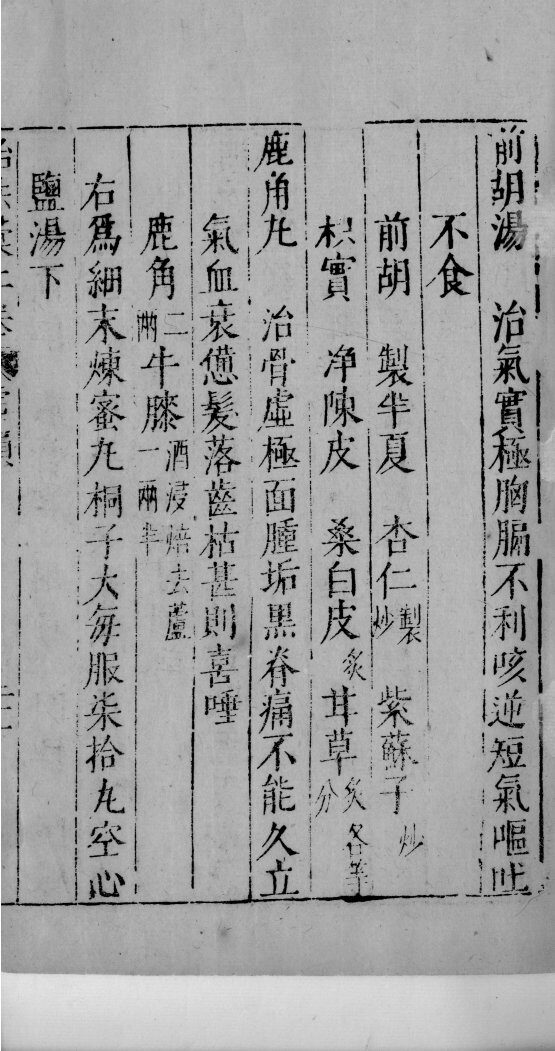 前胡湯　治氣實極胸膈不利咳逆短氣嘔吐
不食
前胡　製半夏　杏仁製炒　紫蘇子炒
枳實　净陳皮　桑白皮炙　甘草炙各等分
鹿角丸　治骨虛極面腫垢黑脊痛不能久立
氣血衰憊髮落齒枯甚則喜唾
鹿角二兩　牛膝酒浸焙去蘆一兩半
右爲細末煉蜜丸桐子大每服柒拾丸空心
鹽湯下